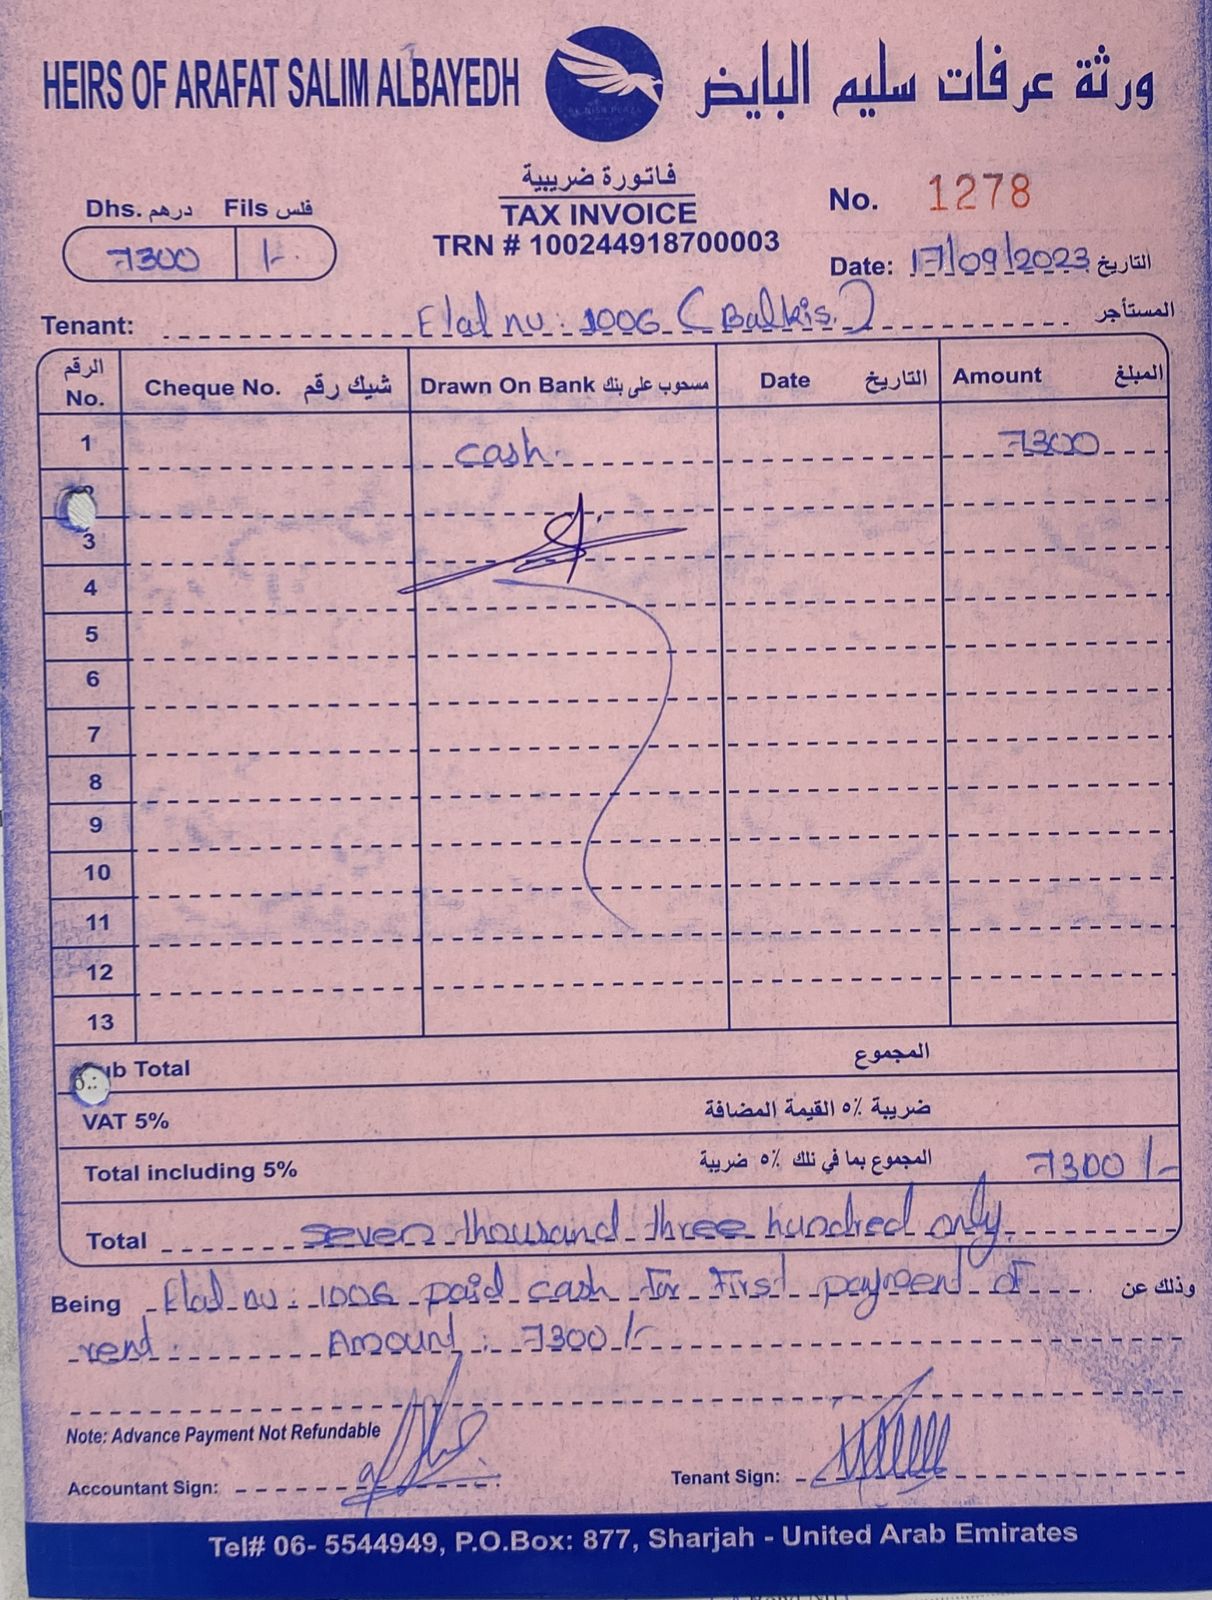 HEIRS OF ARAFAT SALIM ALBAYEDH
ورثة عرفات سليم البايض
فاتورة ضريبية
TAX INVOICE
TRN # 100244918700003
Dhs. درهم Fils فلس
7300 /-
No. 1278
Date: 17/09/2023 التاريخ
Tenant: Flat no: 1006 (Balkis) المستأجر
الرقم No. Cheque No. شيك رقم Drawn On Bank مسحوب على بنك Date التاريخ Amount المبلغ
1 cash. 7300
3
4
5
6
7
8
9
10
11
12
13
ub Total المجموع
VAT 5% ضريبة ٥٪ القيمة المضافة
Total including 5% المجموع بما في تلك ٥٪ ضريبة 7300/-
Total seven thousand three hundred only.
Being Flat no: 1006 paid cash for First payment of وذلك عن
rent. Amount: 7300/-
Note: Advance Payment Not Refundable
Accountant Sign:
Tenant Sign:
Tel# 06- 5544949, P.O.Box: 877, Sharjah - United Arab Emirates